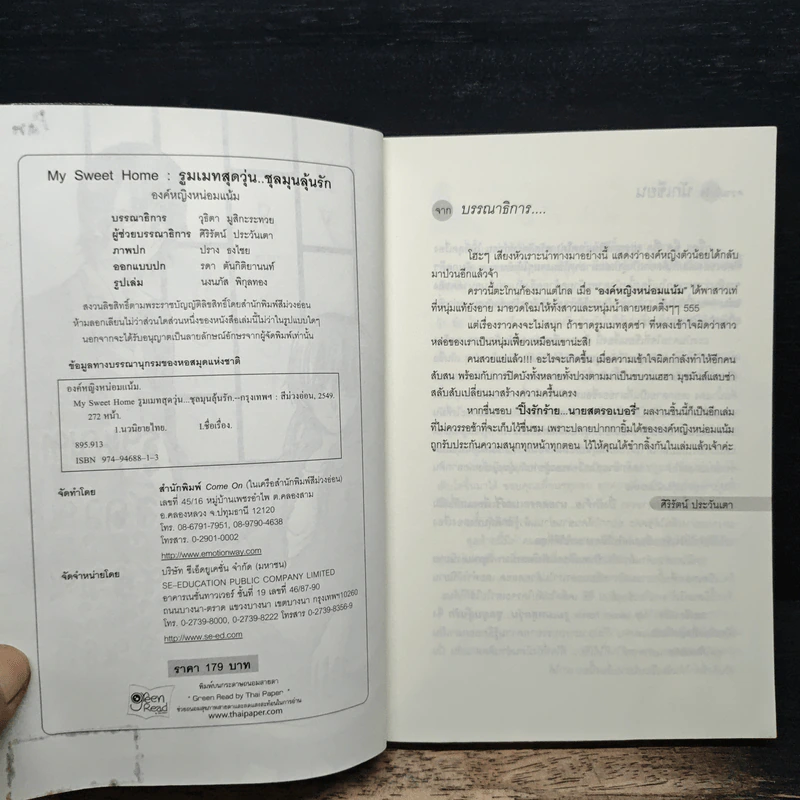 My Sweet Home : รูมเมทสุดวุ่น..ชุลมุนลุ้นรัก
องค์หญิงหน่อมแน้ม
บรรณาธิการ วุธิตา มูสิกะระทวย
ผู้ช่วยบรรณาธิการ ศิริรัตน์ ประวันเตา
ภาพปก ปราง ธงไชย
ออกแบบปก รดา ตันกิติยานนท์
รูปเล่ม นงนภัส พิกุลทอง
สงวนลิขสิทธิ์ตามพระราชบัญญัติลิขสิทธิ์โดยสำนักพิมพ์สีม่วงอ่อน
ห้ามลอกเลียนไม่ว่าส่วนใดส่วนหนึ่งของหนังสือเล่มนี้ไม่ว่าในรูปแบบใดๆ
นอกจากจะได้รับอนุญาตเป็นลายลักษณ์อักษรจากผู้จัดพิมพ์เท่านั้น
ข้อมูลทางบรรณานุกรมของหอสมุดแห่งชาติ
องค์หญิงหน่อมแน้ม.
My Sweet Home รูมเมทสุดวุ่น ชุลมุนลุ้นรัก.--กรุงเทพฯ : สีม่วงอ่อน, 2549.
272 หน้า.
1.นวนิยายไทย. I.ชื่อเรื่อง.
895.913
ISBN 974-94688-1-3
จัดทำโดย สำนักพิมพ์ Come On (ในเครือสำนักพิมพ์สีม่วงอ่อน)
เลขที่ 45/16 หมู่บ้านเพชรอำไพ ต.คลองสาม
อ.คลองหลวง จ.ปทุมธานี 12120
โทร. 08-6791-7951, 08-9790-4638
โทรสาร. 0-2901-0002
http://www.emotionway.com
จัดจำหน่ายโดย บริษัท ซีเอ็ดยูเคชั่น จำกัด (มหาชน)
SE-EDUCATION PUBLIC COMPANY LIMITED
อาคารเนชั่นทาวเวอร์ ชั้นที่ 19 เลขที่ 46/87-90
ถนนบางนา-ตราด แขวงบางนา เขตบางนา กรุงเทพฯ10260
โทร. 0-2739-8000, 0-2739-8222 โทรสาร 0-2739-8356-9
http://www.se-ed.com
ราคา 179 บาท
Green Read
พิมพ์บนกระดาษถนอมสายตา
" Green Read by Thai Paper "
ช่วยถนอมสุขภาพสายตาและลดแสงสะท้อนในการอ่าน
www.thaipaper.com
จาก บรรณาธิการ....
โฮะๆ เสียงหัวเราะนำทางมาอย่างนี้ แสดงว่าองค์หญิงตัวน้อยได้กลับ
มาป่วนอีกแล้วจ้า
คราวนี้ตะโกนก้องมาแต่ไกล เมื่อ "องค์หญิงหน่อมแน้ม" ได้พาสาวเท่
ที่หนุ่มแท้ยังอาย มาอวดโฉมให้ทั้งสาวและหนุ่มน้ำลายหยดติ๋งๆๆ 555
แต่เรื่องราวคงจะไม่สนุก ถ้าขาดรูมเมทสุดซ่า ที่หลงเข้าใจผิดว่าสาว
หล่อของเราเป็นหนุ่มเฟี้ยวเหมือนเขาน่ะสิ!
คนสวยแย่แล้ว!!! อะไรจะเกิดขึ้น เมื่อความเข้าใจผิดกำลังทำให้อีกคน
สับสน พร้อมกับการปิดบังทั้งหลายทั้งปวงตามมาเป็นขบวนเฮฮา มุขมันส์แสบซ่า
สลับสับเปลี่ยนมาสร้างความครื้นเครง
หากชื่นชอบ "ปิ๊งรักร้าย...นายสตรอเบอรี่" ผลงานชิ้นนี้ก็เป็นอีกเล่ม
ที่ไม่ควรรอช้าที่จะเก็บไว้ชื่นชม เพราะปลายปากกายิ้มได้ขององค์หญิงหน่อมแน้ม
ถูกรับประกันความสนุกทุกหน้าทุกตอน ไว้ให้คุณได้ขำกลิ้งกันในเล่มแล้วเจ้าค่ะ
ศิริรัตน์ ประวันเตา